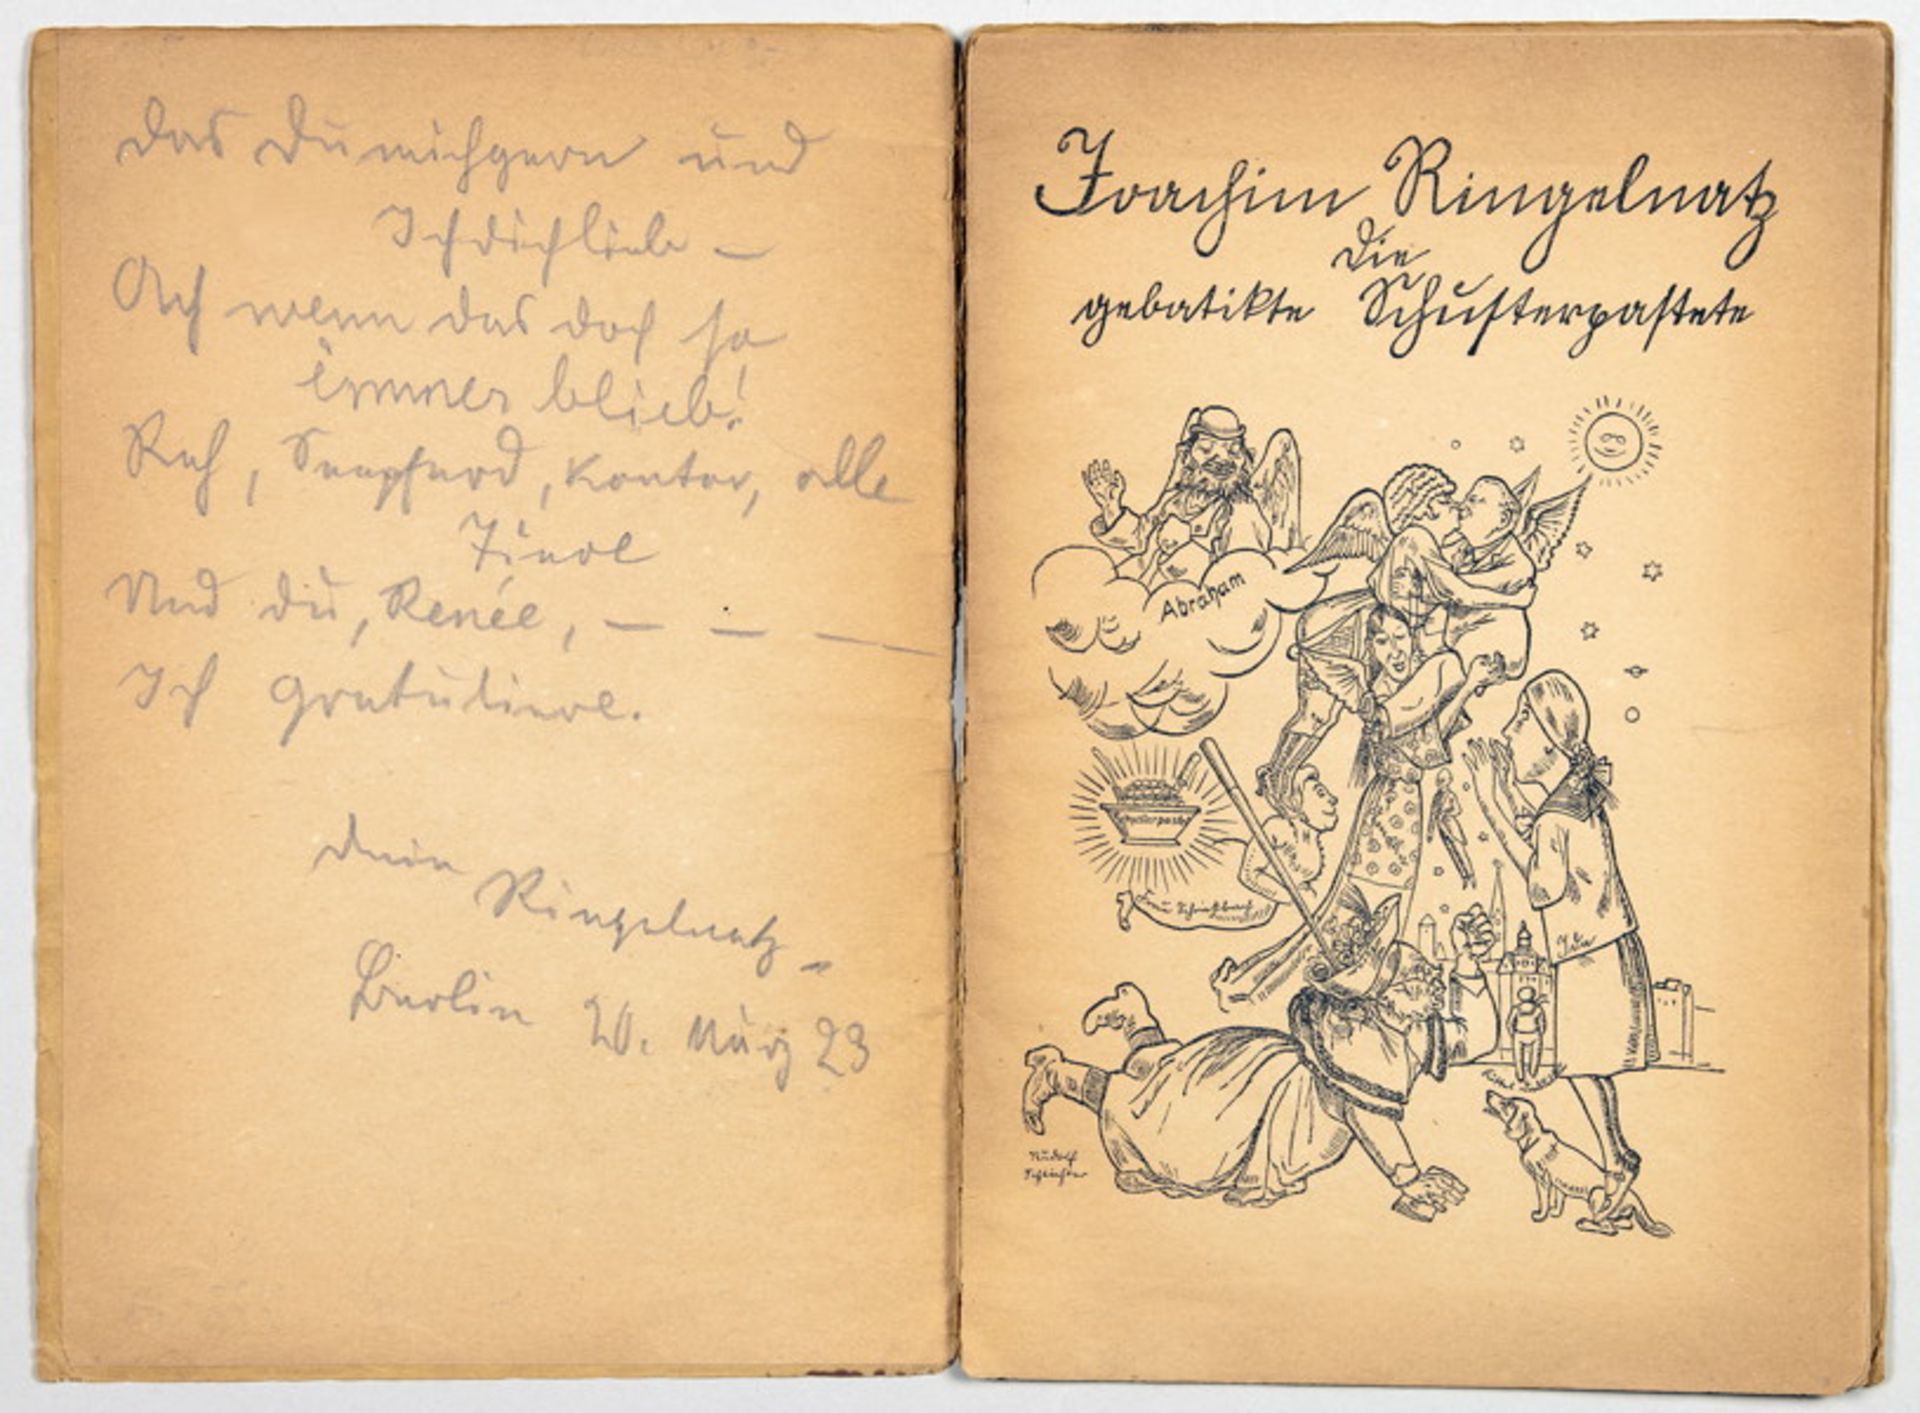 Das Du michgern und
Ichdichlieb –
Ach wenn das doch so
immer blieb!
Reh, Seepferd, Kontor, alle
Tiere
Und du, Renée, – – –
Ich gratuliere.
Dein
Ringelnatz –
Berlin 20. März 23
Joachim Ringelnatz
Die
gebatikte Schusterpastete
Abraham
Rudolf
Schlichter